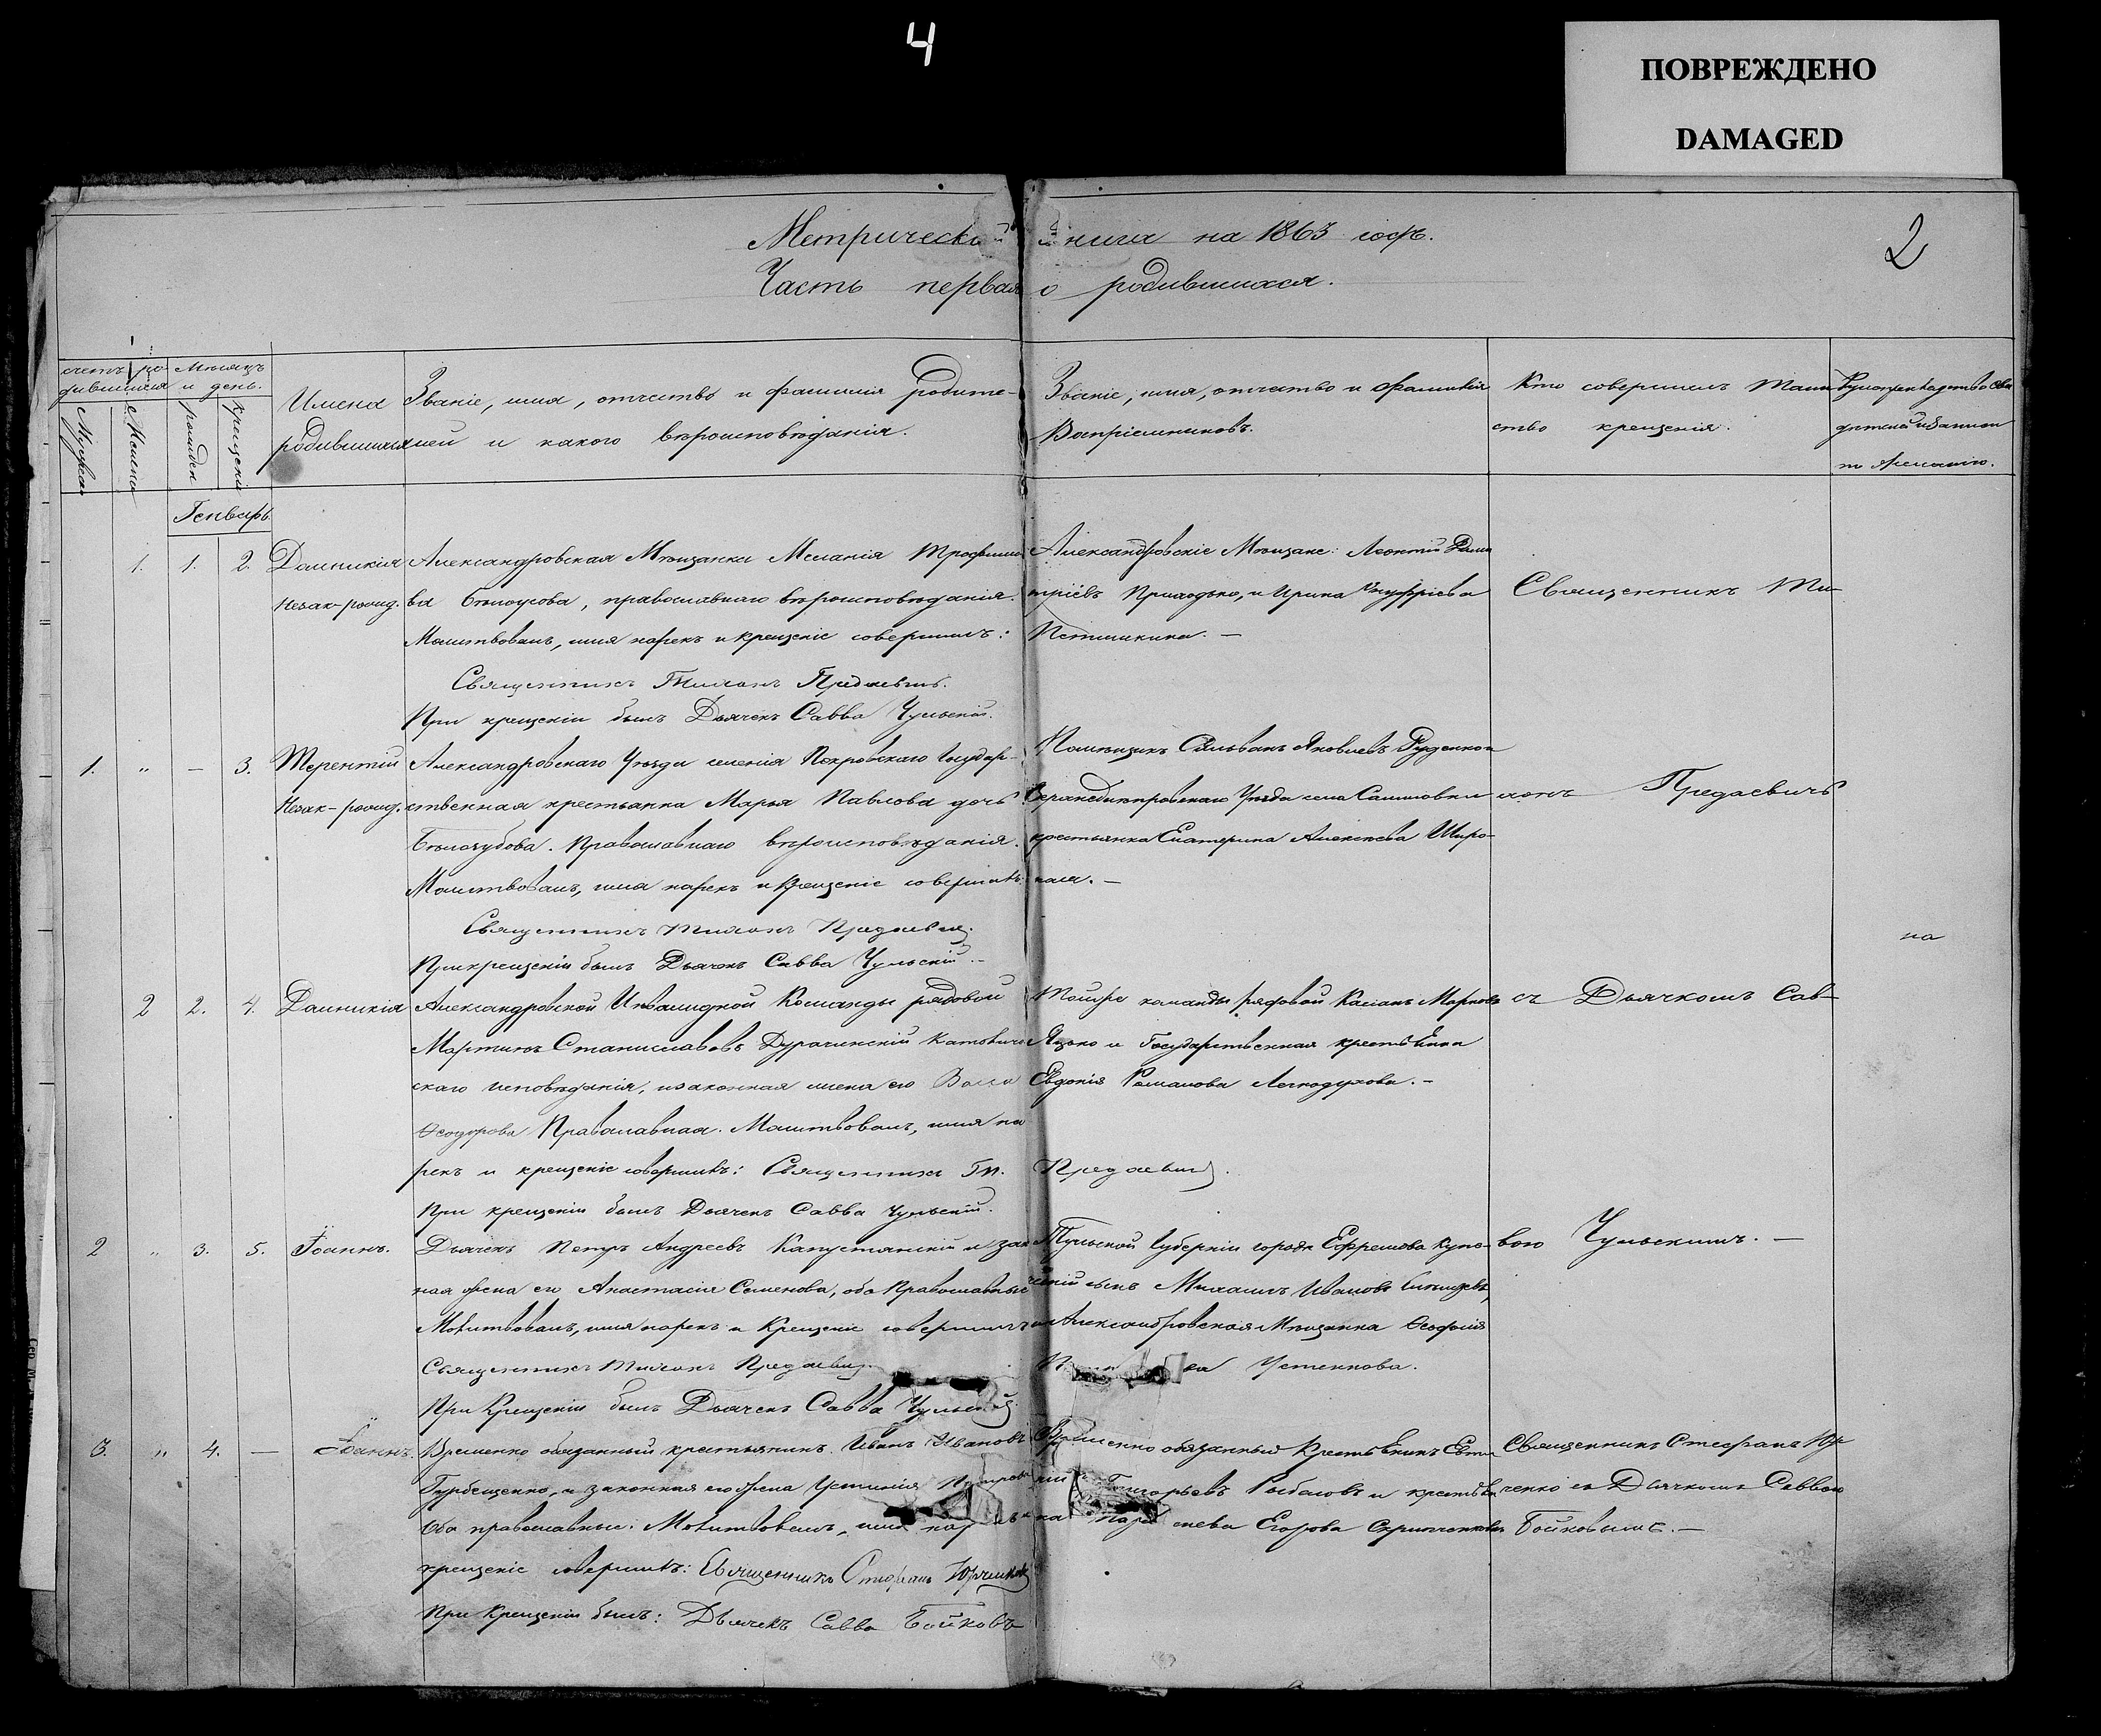 4
ПОВРЕЖДЕНО
DAMAGED
Метрическ нига на 1863 годъ.
2
Часть первая о родившихся.
счетъ ро-
дившихся
Мужеска
Женска
Мѣсяцъ
и день.
рожден
крещенія
Имена
родившихся
Званіе, имя, отчество и фамилія родите-
лей и какого вѣроисповѣданія.
Званіе, имя, отчество и фамилія
Воспріемниковъ.
Кто совершилъ таин
ство крещенія.
по желанію.
Генварь
1. 1. 2. Домникія
Незак-рожд.
Александровская Мѣщанка Меланія Трофимо
ва Бѣлоусова, православнаго вѣроисповѣданія.
Молитвовалъ, имя нарекъ и крещеніе совершилъ:
Священникъ Тихонъ Предаевичъ.
При крещеніи былъ Дьячекъ Савва Чульскій.
Александровскіе Мѣщане: Леонтій Дими
тріевъ Приходько, и Ирина Онуфріева
Петишкина. —
Священникъ Ти-
1. " — 3. Терентій
Незак-рожд.
Александровскаго Уѣзда селенія Покровскаго Государ-
ственная крестьянка Марья Павлова дочь
Бѣлозубова. Православнаго вѣроисповѣданія.
Молитвовалъ, имя нарекъ и Крещеніе совершилъ:
Священникъ Тихонъ Предаевичъ.
При крещеніи былъ Дьячекъ Савва Чульскій.-
Помѣщикъ Сильванъ Яковлевъ Руденко и
Уѣзда села
крестьянка Екатерина Алексѣева Широ-
кая. —
хонъ Предаевичъ
на
2 2. 4. Домникія
Александровской Инвалидной Команды рядовой
Мартинъ Станиславовъ Дурачинскій Католиче
скаго исповѣданія, и законная жена его
Ѳеодорова Православная. Молитвовалъ, имя на
рекъ и крещеніе совершилъ: Священникъ Ти. Предаевичъ.
При крещеніи былъ Дьячекъ Савва Чульскій.
Тойже команды рядовой Касіанъ Марковъ
Яцько и Государственная крестьянка
Евдокія Романова Легкодухова. -
съ Дьячкомъ Сав-
2 " 3. 5. Іоаннъ.
Дьячекъ Петръ Андреевъ Капустянскій и зако
ная жена его Анастасія Семенова, оба Православные
Молитвовалъ, имя нарекъ и Крещеніе совершилъ
Священникъ Тихонъ Предаевичъ.
При Крещеніи былъ Дьячекъ Савва Чульскій
Тульской Губерніи города Ефремова купе-
ческій сынъ Михаилъ Ивановъ
и Александровская Мѣщанка Ѳеофанія
Устенкова.
вою Чульскимъ. —
3. " 4. — Іоаннъ.
Временно обязанный крестьянинъ Иванъ Ивановъ
Гербещенко, и законная его жена Устинія Петрова
Оба православные. Молитвовалъ, имя нарекъ и
крещеніе совершилъ: Священникъ Стефанъ Юрченко
При Крещеніи былъ: Дьячекъ Савва Бойковъ
Временно обязанный Крестьянинъ Евти
хій Григорьевъ Рыбаловъ и крестьян
ка Егорова
Священникъ Стефанъ Юр
ченко съ Дьячкомъ Саввою
Бойковымъ. —